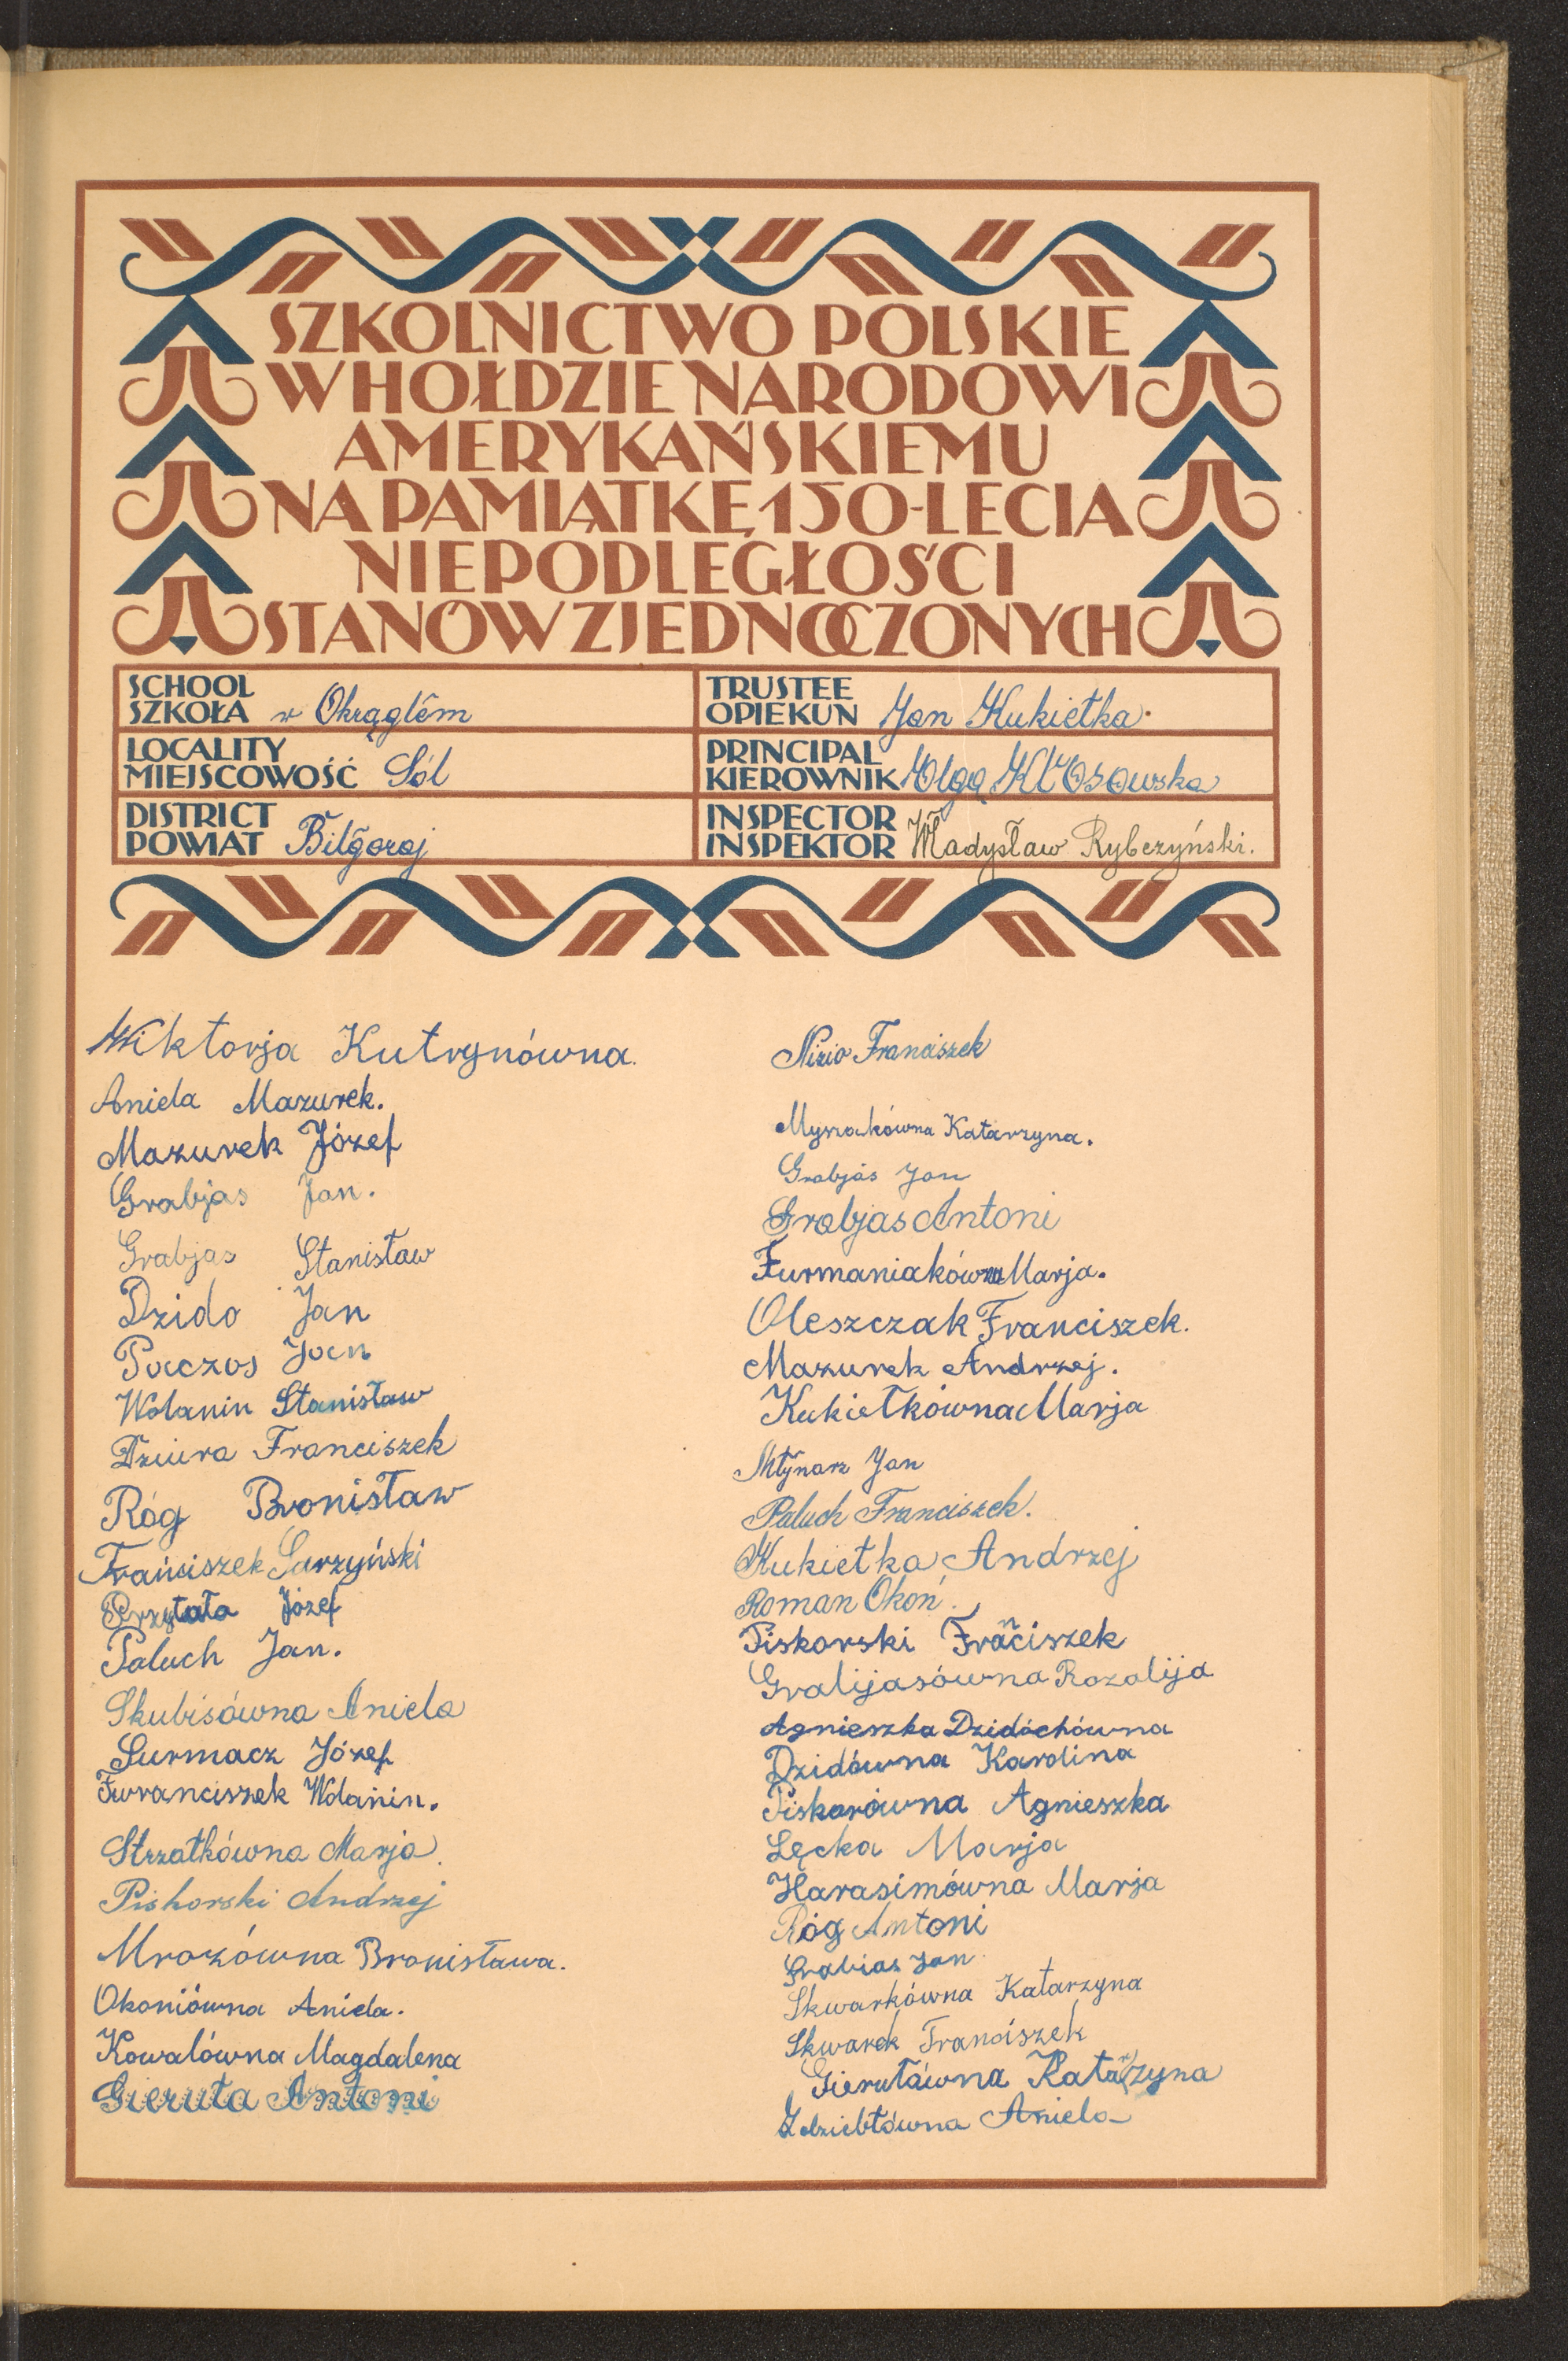 SZKOLNICTWO POLSKIE
W HOŁDZIE NARODOWI
AMERYKAŃSKIEMU
NA PAMIĄTKĘ 150-LECIA
NIEPODLEGŁOŚCI
STANÓW ZJEDNOCZONYCH
SCHOOL
SZKOŁA w Okrągłem
TRUSTEE
OPIEKUN Jan Kukiełka.
LOCALITY
MIEJSCOWOŚĆ Sól
PRINCIPAL
KIEROWNIK Olga Kłosowska
DISTRICT
POWIAT Biłgoraj
INSPECTOR
INSPEKTOR Władysław Rybczyński.
Wiktorja Kutrynówna.
Aniela Mazurek.
Mazurek Józef
Grabjas Jan.
Grabjas Stanisław
Dzido Jan
Paczos Jan
Wolanin Stanisław
Dziura Franciszek
Róg Bronisław
Franciszek Surzyński
Przytuła Józef
Paluch Jan.
Skubisówna Aniela
Surmacz Józef
Fwranciszek Wolanin.
Strzałkówna Marja.
Piskorski Andrzej
Mrozówna Bronisława.
Okoniówna Aniela.
Kowalówna Magdalena
Gieruta Antoni
Nizio Franciszek
Myszakówna Katarzyna.
Grabjas Jan
Grabjas Antoni
Furmaniakówna Marja.
Oleszczak Franciszek.
Mazurek Andrzej.
Kukiełkówna Marja
Młynarz Jan
Paluch Franciszek.
Kukiełka Andrzej
Roman Okoń.
Piskorski Franciszek
Gralijasówna Rozalija
Agnieszka Dzidóchówna
Dzidówna Karolina
Piskorówna Agnieszka
Łęcka Marja
Harasimówna Marja
Róg Antoni
Grabias Jan
Skwarkówna Katarzyna
Skwarek Franciszek
Gierutówna Katarzyna
Zdziebłówna Aniela